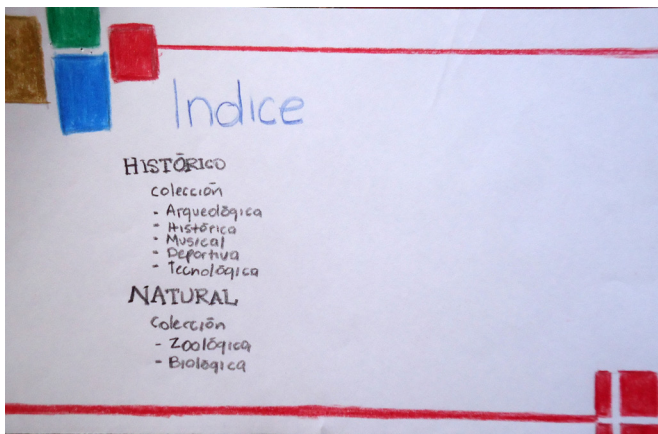 Indice
HISTÓRICO
colección
- Arqueológica
- Histórica
- Musical
- Deportiva
- Tecnológica
NATURAL
colección
- Zoológica
- Biológica